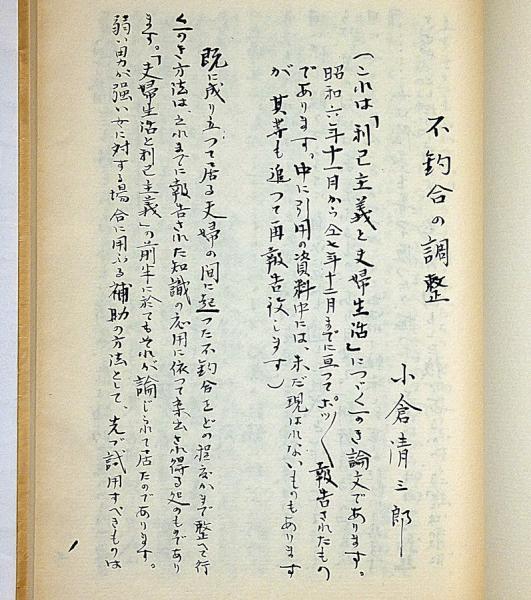 不釣合の調整
小倉清三郎
(これは「利己主義と夫婦生活」につづくつき論文であります。
昭和六年十一月から仝七年十二月までに亘つてポツ〱報告されたもの
であります。中に引用の資料中には、未だ現はれないものもあります
が 其等も追つて再報告役します)
既に成り立つて居る夫婦の間に起つた不釣合をどの程度かまで整へて行
くつき方法はこれまでに報告された知識の応用に依つて案出され得る処のものであり
ます。「夫婦生活と利己主義」の前半に於てもそれが論じられて居たのであります。
弱い男が強い女に対する場合に用ふる補助の方法として、先づ試用すべきものは